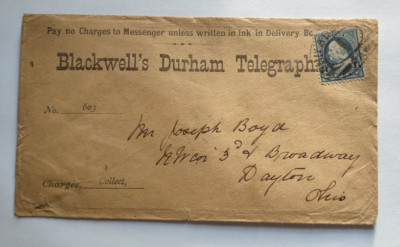 Pay no Charges to Messenger unless written in Ink in Delivery Bo
Blackwell's Durham Telegraph
No. 603
Mr Joseph Boyd
N W Cor 3rd & Broadway
Dayton
Ohio
Charges, Collect,